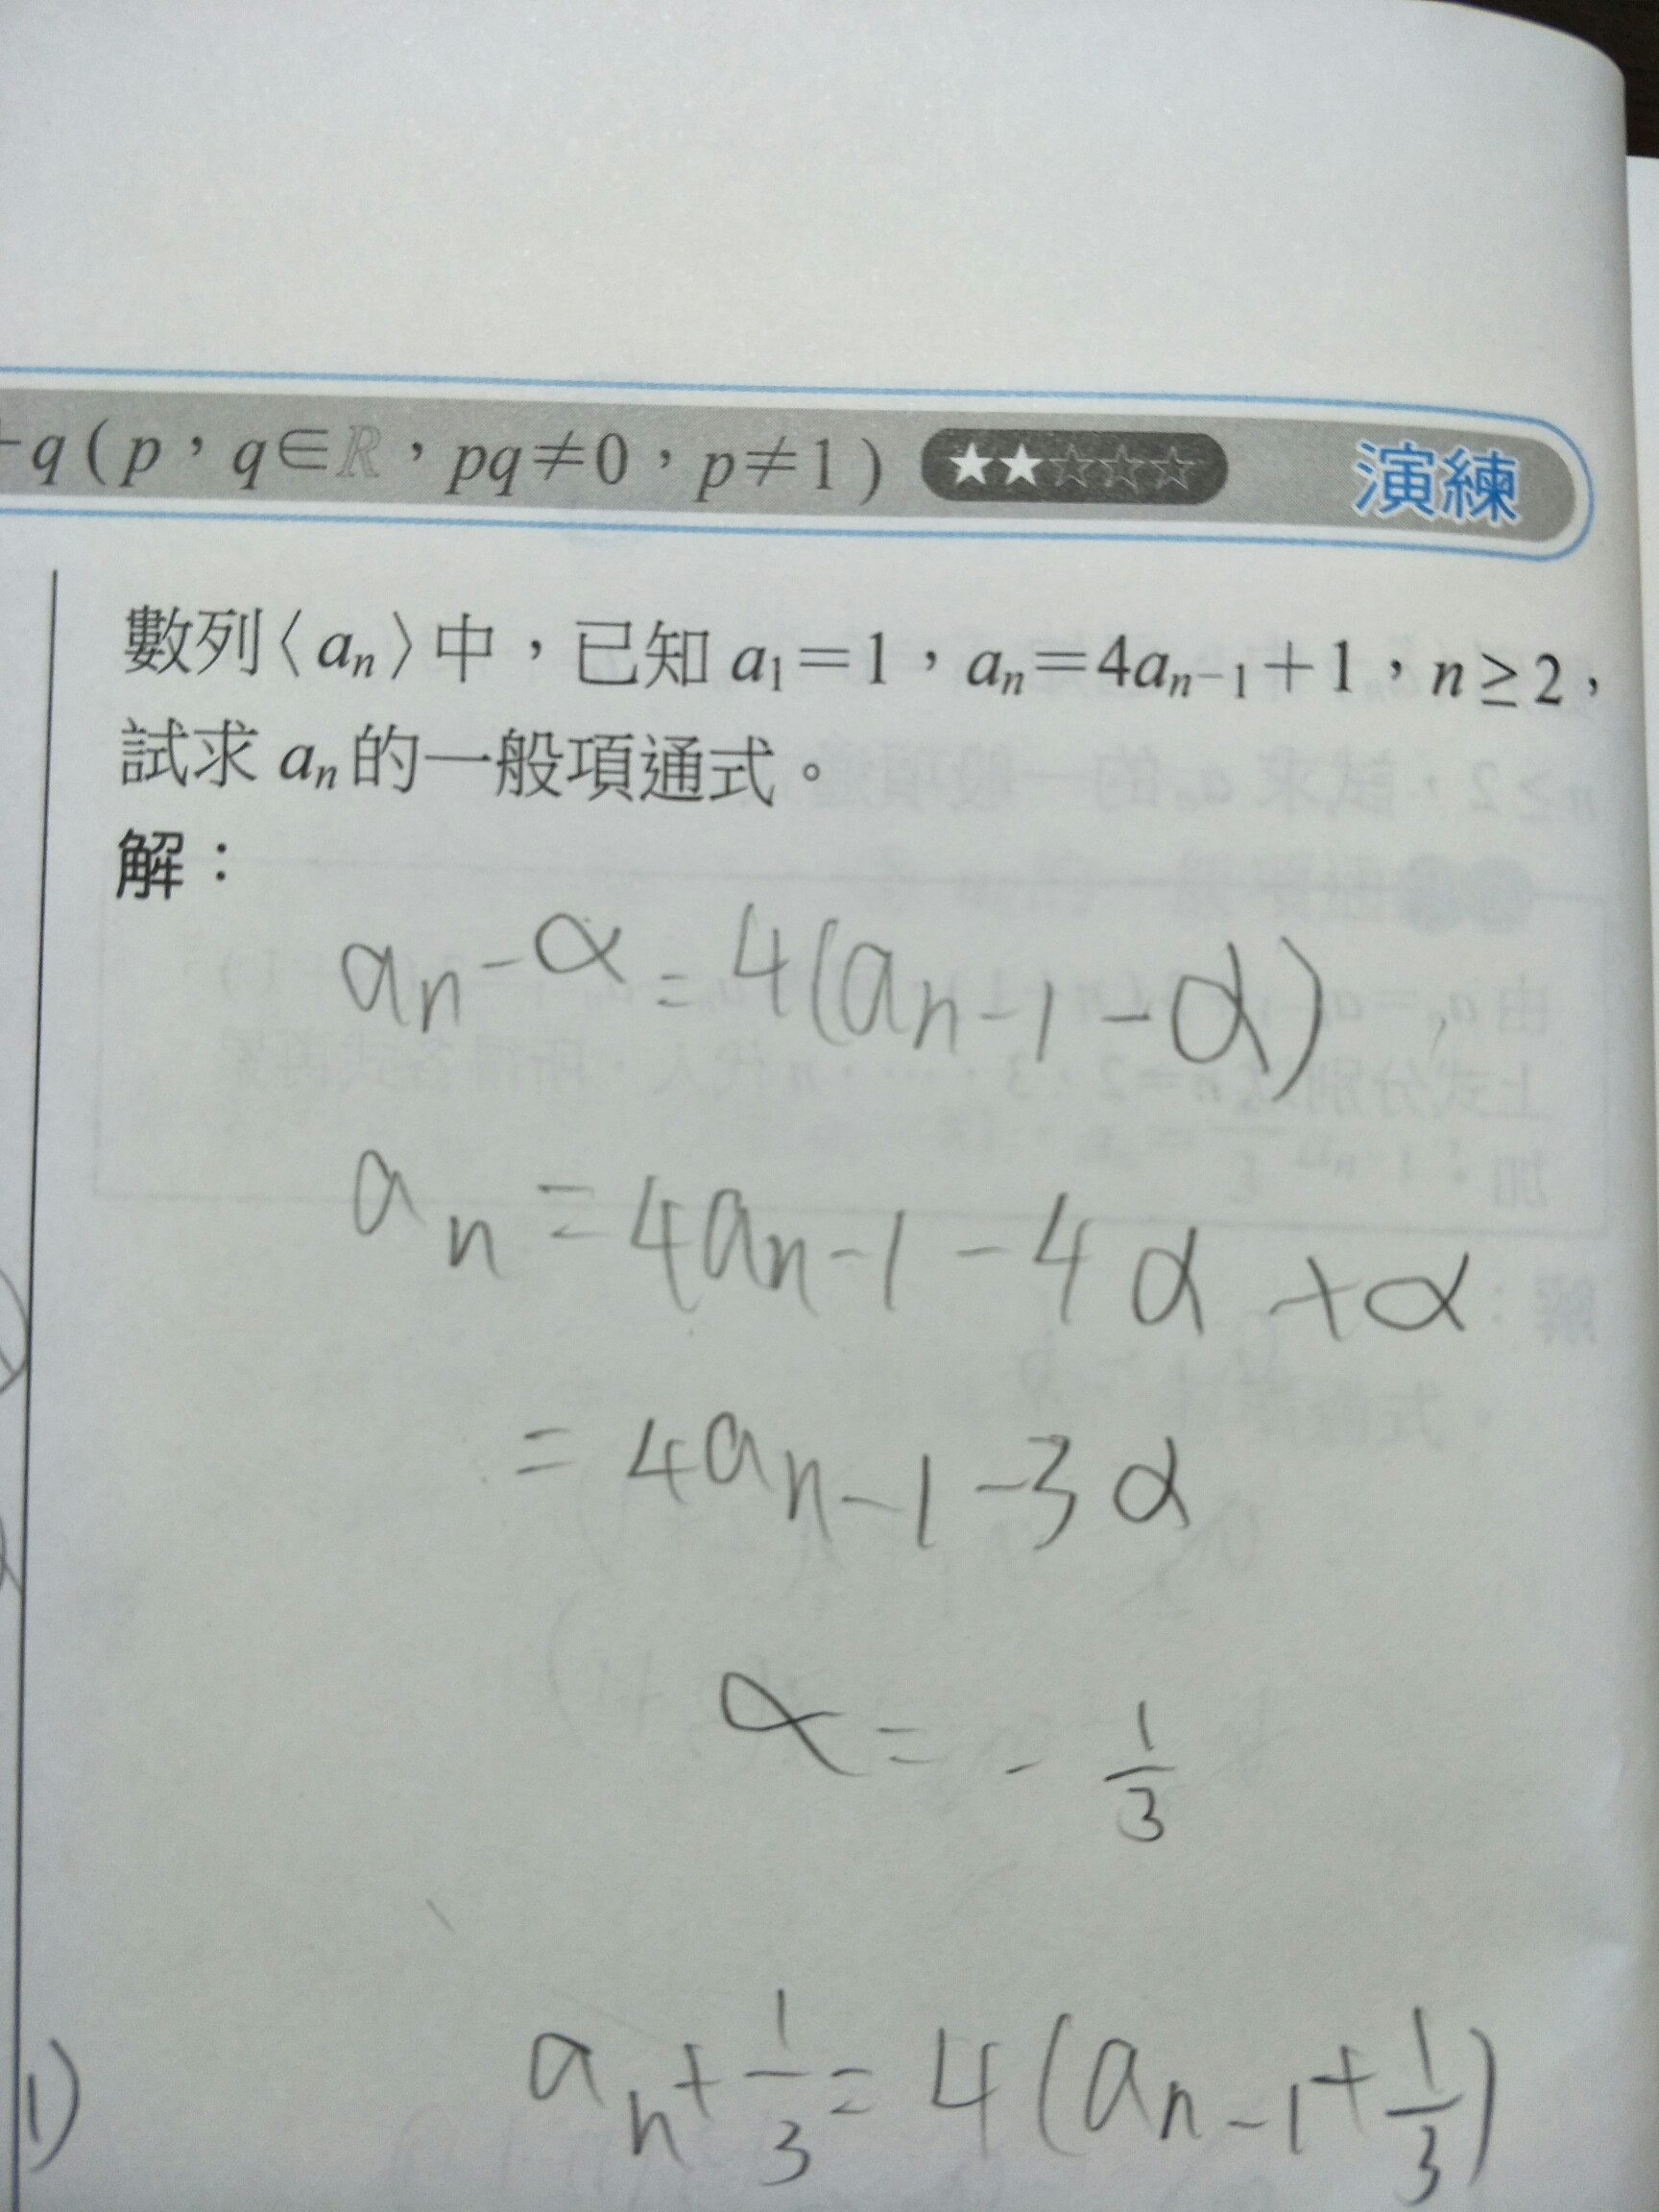 q(p，q∈ℝ，pq≠0，p≠1) ★★☆☆☆ 演練
數列〈aₙ〉中，已知 a₁=1，aₙ=4aₙ₋₁+1，n≥2，
試求 aₙ 的一般項通式。
解：
aₙ-α=4(aₙ₋₁-α)
aₙ=4aₙ₋₁-4α+α
=4aₙ₋₁-3α
α=-1/3
1)
aₙ+1/3=4(aₙ₋₁+1/3)